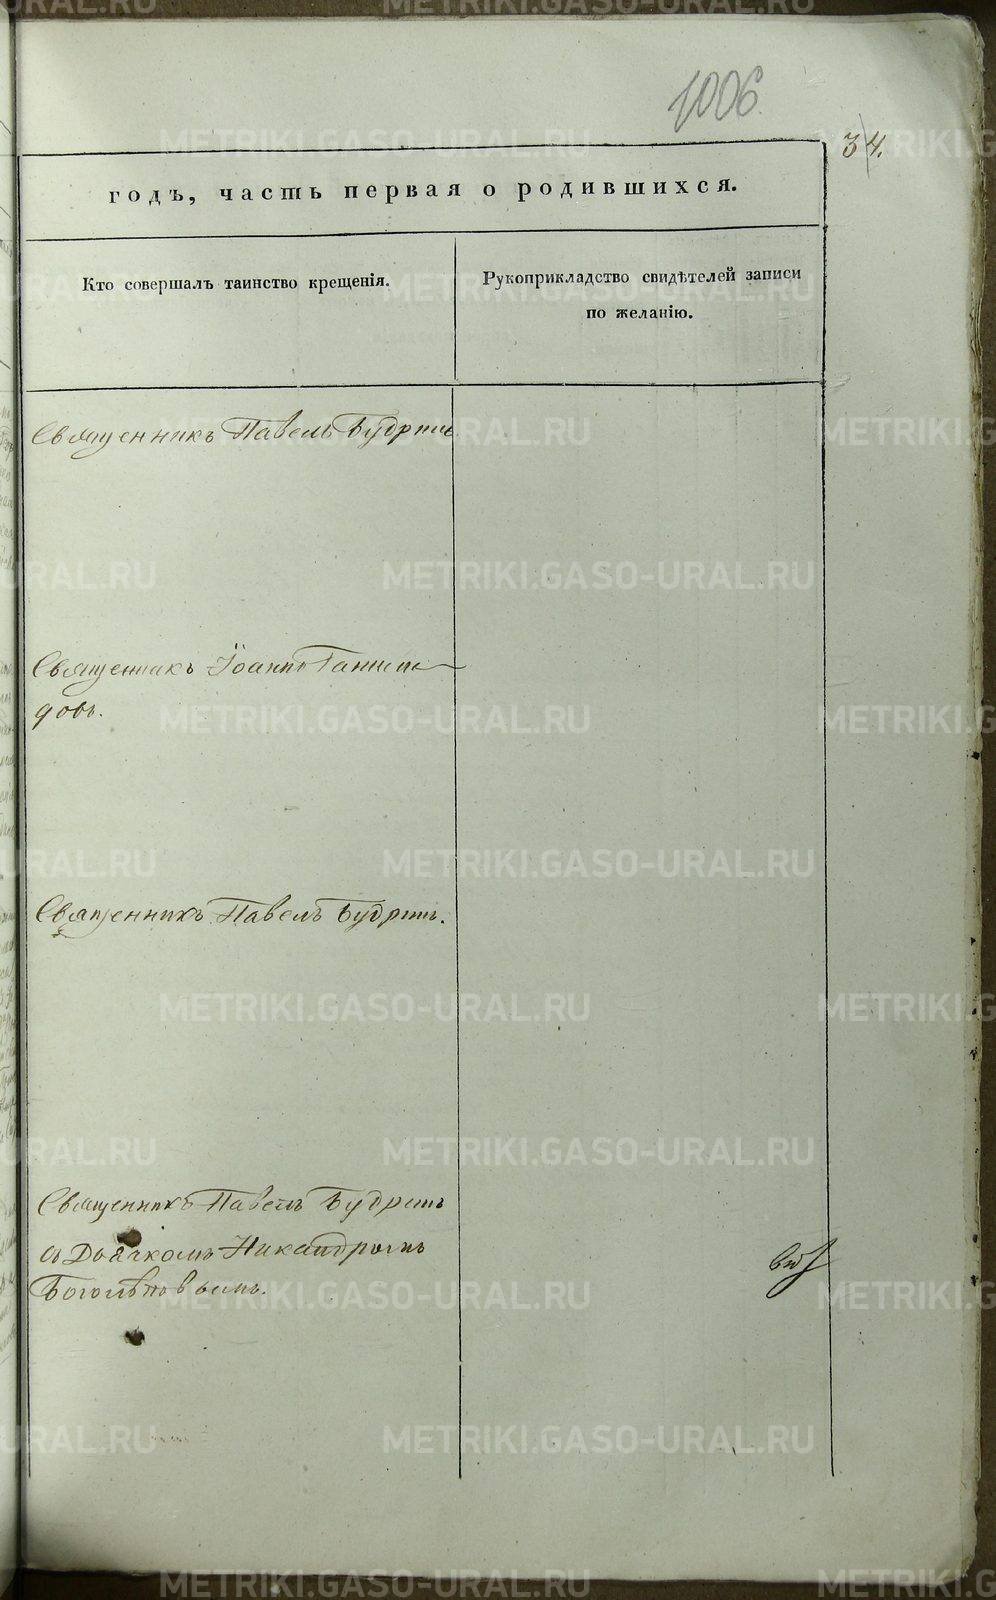 1006.
34.
годъ, часть первая о родившихся.
Кто совершалъ таинство крещенія.
Рукоприкладство свидѣтелей записи
по желанію.
Священникъ Павелъ Будринъ
Священникъ Іоаннъ
довъ.
Священникъ Павелъ Будринъ.
Священникъ Павелъ Будринъ
съ Дьякомъ Никандромъ
Боголѣповымъ.
METRIKI.GASO-URAL.RU